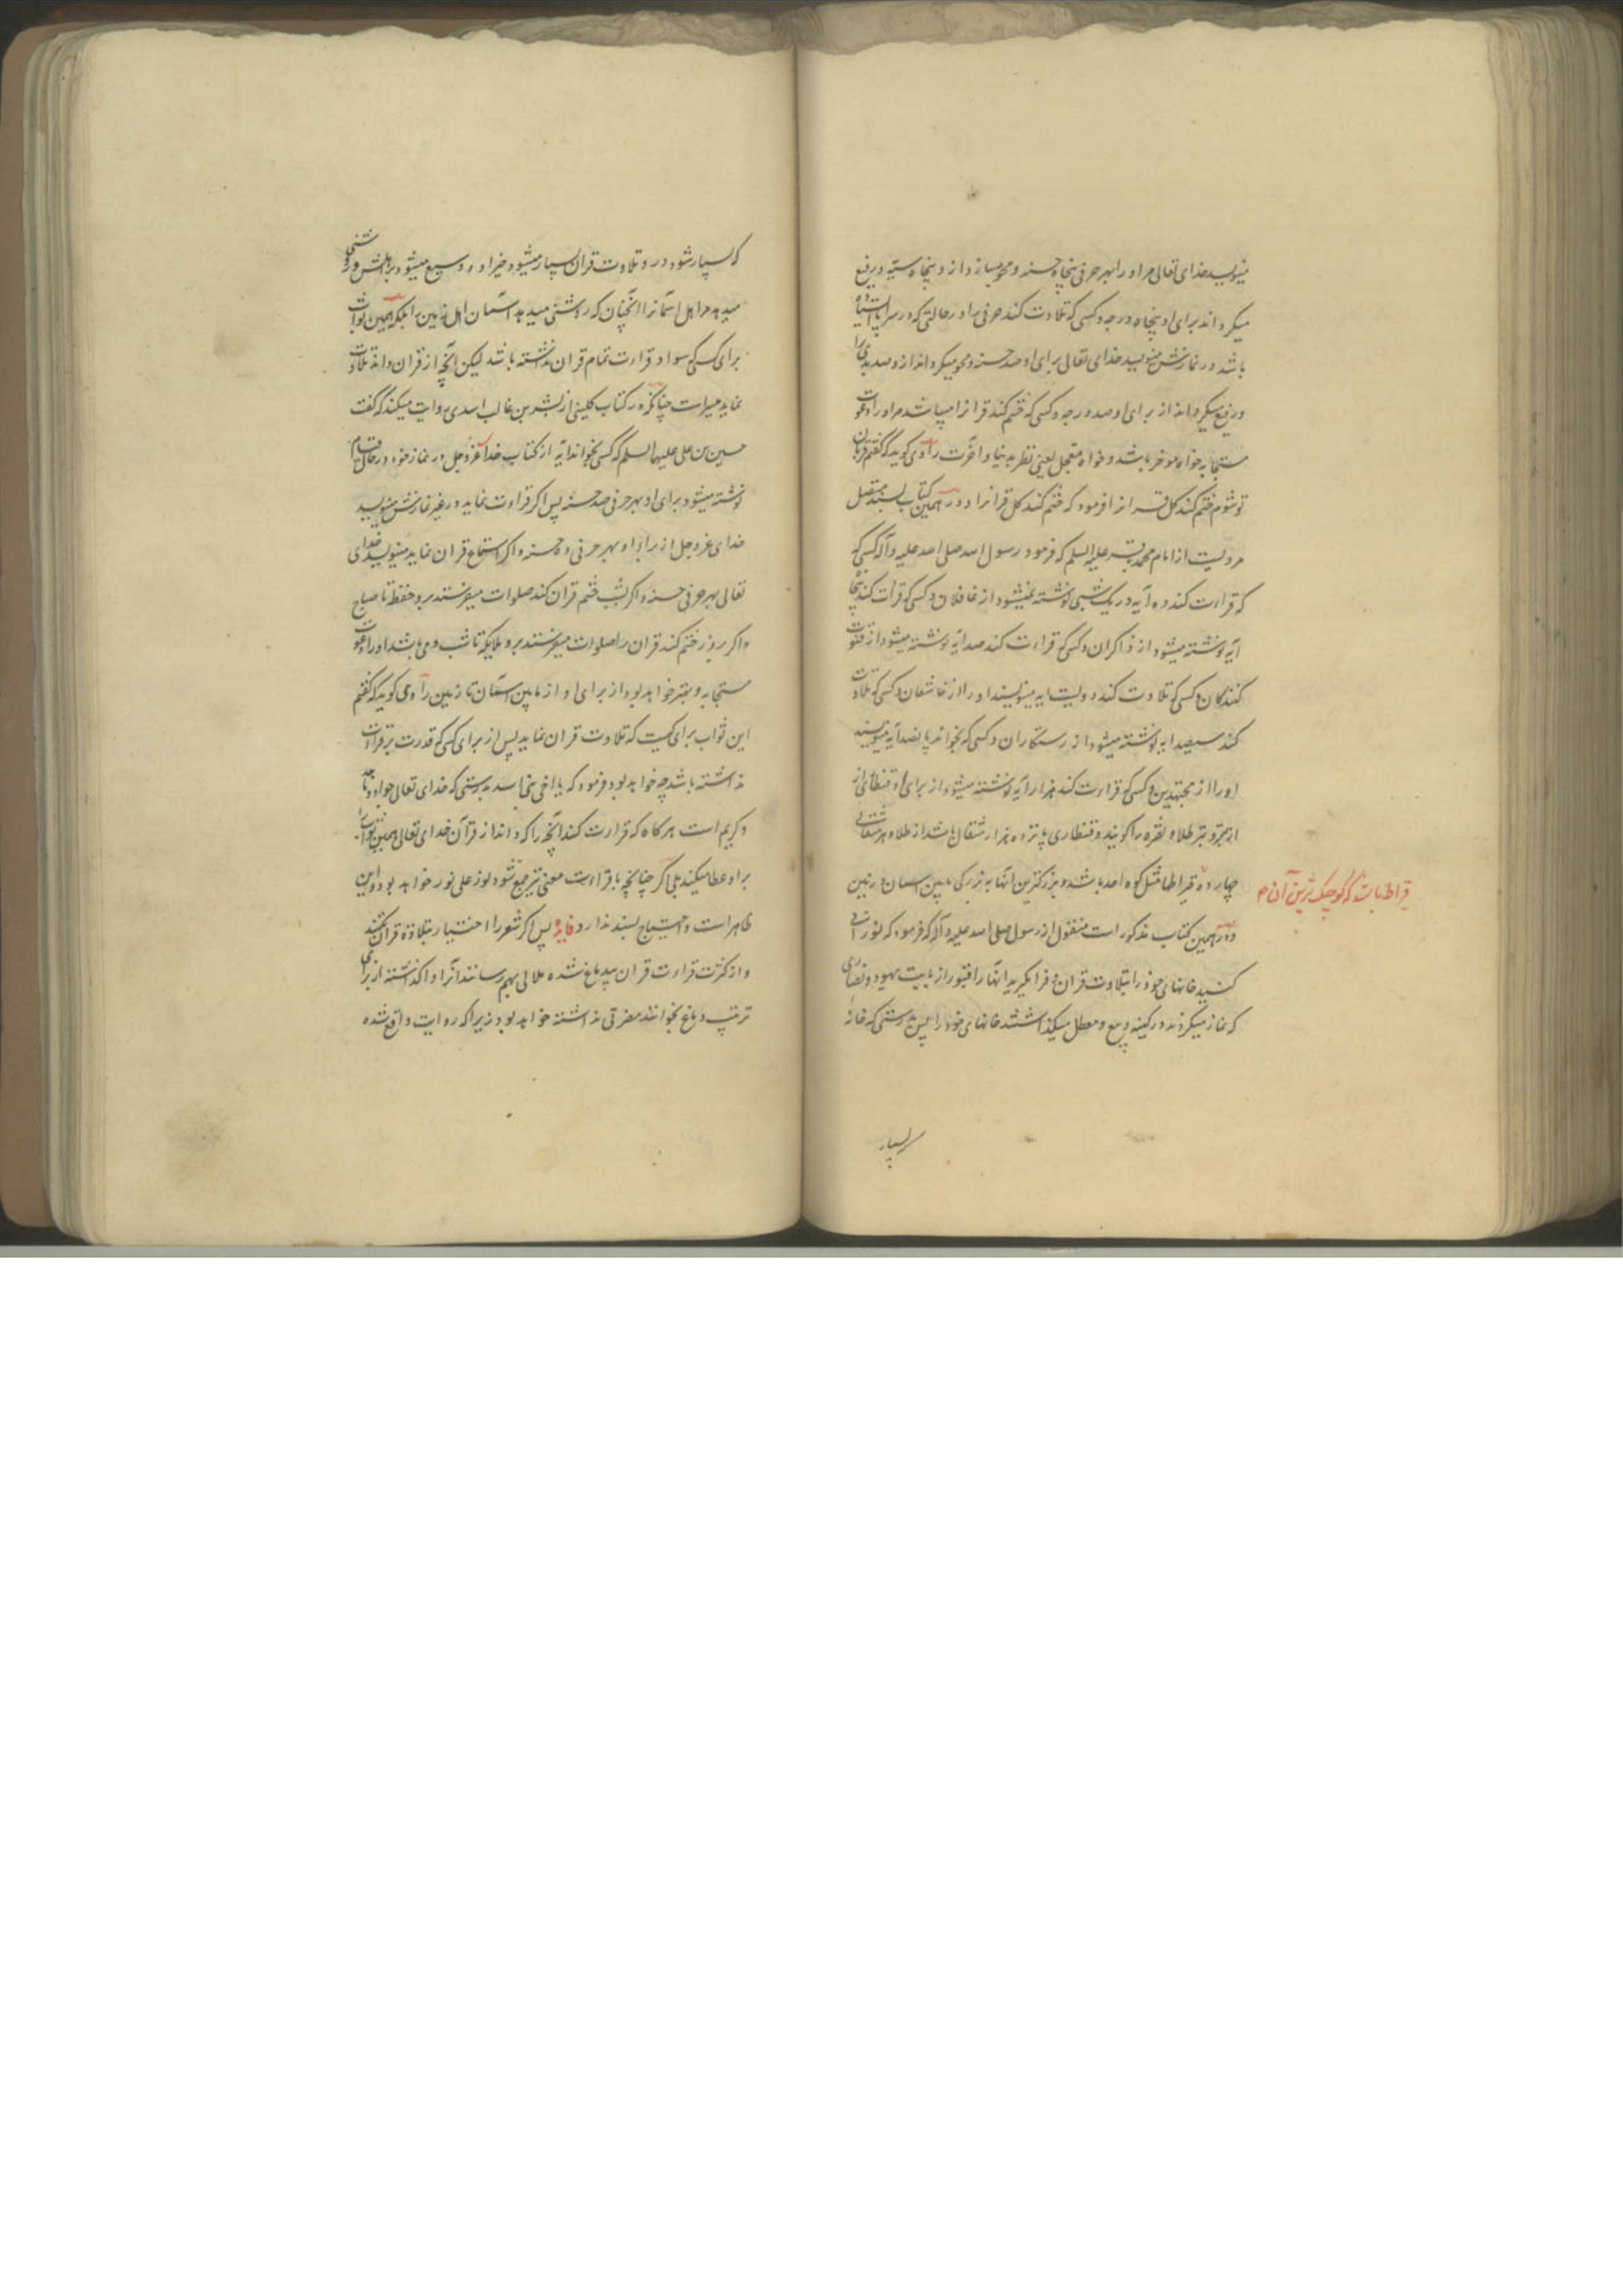 مینویسد خدای تعالی مر او را بهر حرفی پنجاه حسنه و محو میسازد از و پنجاه سیّه و رفع
میکرداند برای او پنجاه درجه و کسی که تلاوت کند حرفی را در حالتی که در سر پا ایستاده
باشد در نمازش مینویسد خدای تعالی برای او صد حسنه و محو میکرداند از و صد بدی را
و رفع میکرداند از برای او صد درجه و کسی که ختم کند قرانرا میباشد مر او را دعوت
مستجابه خواه موخر باشد و خواه معجل یعنی نظر بدنیا و اخرت راوی کوید که کفتم قربان
تو شوم ختم کند کل قرانرا فرمود که ختم کند کل قرانرا و در همین کتاب بسند متصل
مرویست از امام محمد باقر علیه السلم که فرمود رسول الله صلی الله علیه و آله کسی که
که قراءت کند ده آیه در یک شبی نوشته نمیشود از غافلان و کسی که قرات کند پنجاه
آیه نوشته میشود از ذاکران و کسی که قراءت کند صد آیه نوشته میشود از قنوت
کنندکان و کسی که تلاوت کند دویست ایه مینویسند او را از خاشعان و کسی که تلاوت
کند سیصد ایه نوشته میشود از رستکاران و کسی که بخواند پانصد آیه مینویسند
او را از مجتهدین و کسی که قراءت کند هزار آیه نوشته میشود از برای او قنطاری از
از بر و بر طلا و نقره را کویند و قنطاری پانزده هزار مثقال باشد از طلا و هر مثقالی
چهارده قیراطها مثل کوه احد باشد و بزرکترین انها به بزرکی مابین اسمان و زمین
و در همین کتاب مذکور است منقول از رسول صلی الله علیه و آله که فرمود که نورانی
کنید خانهای خود را بتلاوت قران و فرا نکیرید انها را قبور از بابت یهود و نصاری
که نماز میکردند در کنیسه و بیع و معطل میکذاشتند خانهای خود را پس بدرستی که خانه
قیراط باشد که کوچک ترین آن م
که بسیار
که بسیار شود در و تلاوت قران بسیار میشود خیر او و وسیع میشود بر اهلش و روشنی
میدهد مر اهل اسمانرا انچنان که روشنی میدهد آسمان اهل زمین را بلکه همین ثواب
برای کسی که سواد قراءت تمام قران نداشته باشد لیکن آنچه از قران داند تلاوت
نماید میراست چنانکه در کتاب کلینی از بشر بن غالب اسدی روایت میکند که کفت
حسین بن علی علیهما السلم که کسی بخواند آیه از کتاب خدا عزوجل در نماز خود در حال قیام
نوشته میشود برای او بهر حرفی صد حسنه پس اکر قراءت نماید در غیر نمازش مینویسد
خدای عزوجل از برای او بهر حرفی ده حسنه و اکر استماع قران نماید مینویسد خدای
تعالی بهر حرفی حسنه و اکر بشب ختم قران کند صلوات میفرستند برو حفظه تا صباح
و اکر بروز ختم کند قران را صلوات میفرستند برو ملایکه تا شب و می باشد او را دعوت
مستجابه و بهتر خواهد بود از برای او از مابین آسمان تا زمین راوی کوید که کفتم
این ثواب برای کیست که تلاوت قران نماید پس از برای کسی که قدرت بر قراءت
نداشته باشد چه خواهد بود فرمود که یا اخی بنی اسد بدرستی که خدای تعالی جواد و ماجد
و کریم است هرکاه که قراءت کند آنچه را که داند از قرآن خدای تعالی همین ثواب را
براو عطا میکند بلی اکر چنانچه با قراءت معنی نیز جمع شود نور علی نور خواهد بود و این
ظاهر است و احتیاج بسند ندارد فایده پس اکر شعر را اختیار بتلاوة قران نکنند
و از کثرت قراءت قران بیدماغ شده ملالی بهم رسانند آنرا واکذاشته از برای
ترتیب دماغ بخوانند مضرتی نداشته خواهد بود زیرا که روایت واقع شده